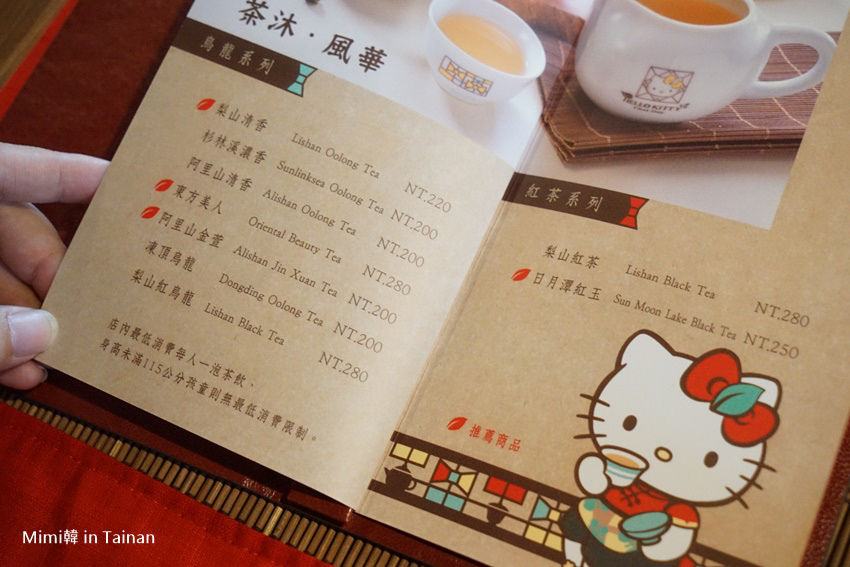 茶沐·風華
烏龍系列
梨山清香 Lishan Oolong Tea NT.220
杉林溪濃香 Sunlinksea Oolong Tea NT.200
阿里山清香 Alishan Oolong Tea NT.200
東方美人 Oriental Beauty Tea NT.280
阿里山金萱 Alishan Jin Xuan Tea NT.200
凍頂烏龍 Dongding Oolong Tea NT.200
梨山紅烏龍 Lishan Black Tea NT.280
店內最低消費每人一泡茶飲、
身高未滿115公分孩童則無最低消費限制。
HELLO KITTY
紅茶系列
梨山紅茶 Lishan Black Tea NT.280
日月潭紅玉 Sun Moon Lake Black Tea NT.250
推薦商品
Mimi韓 in Tainan